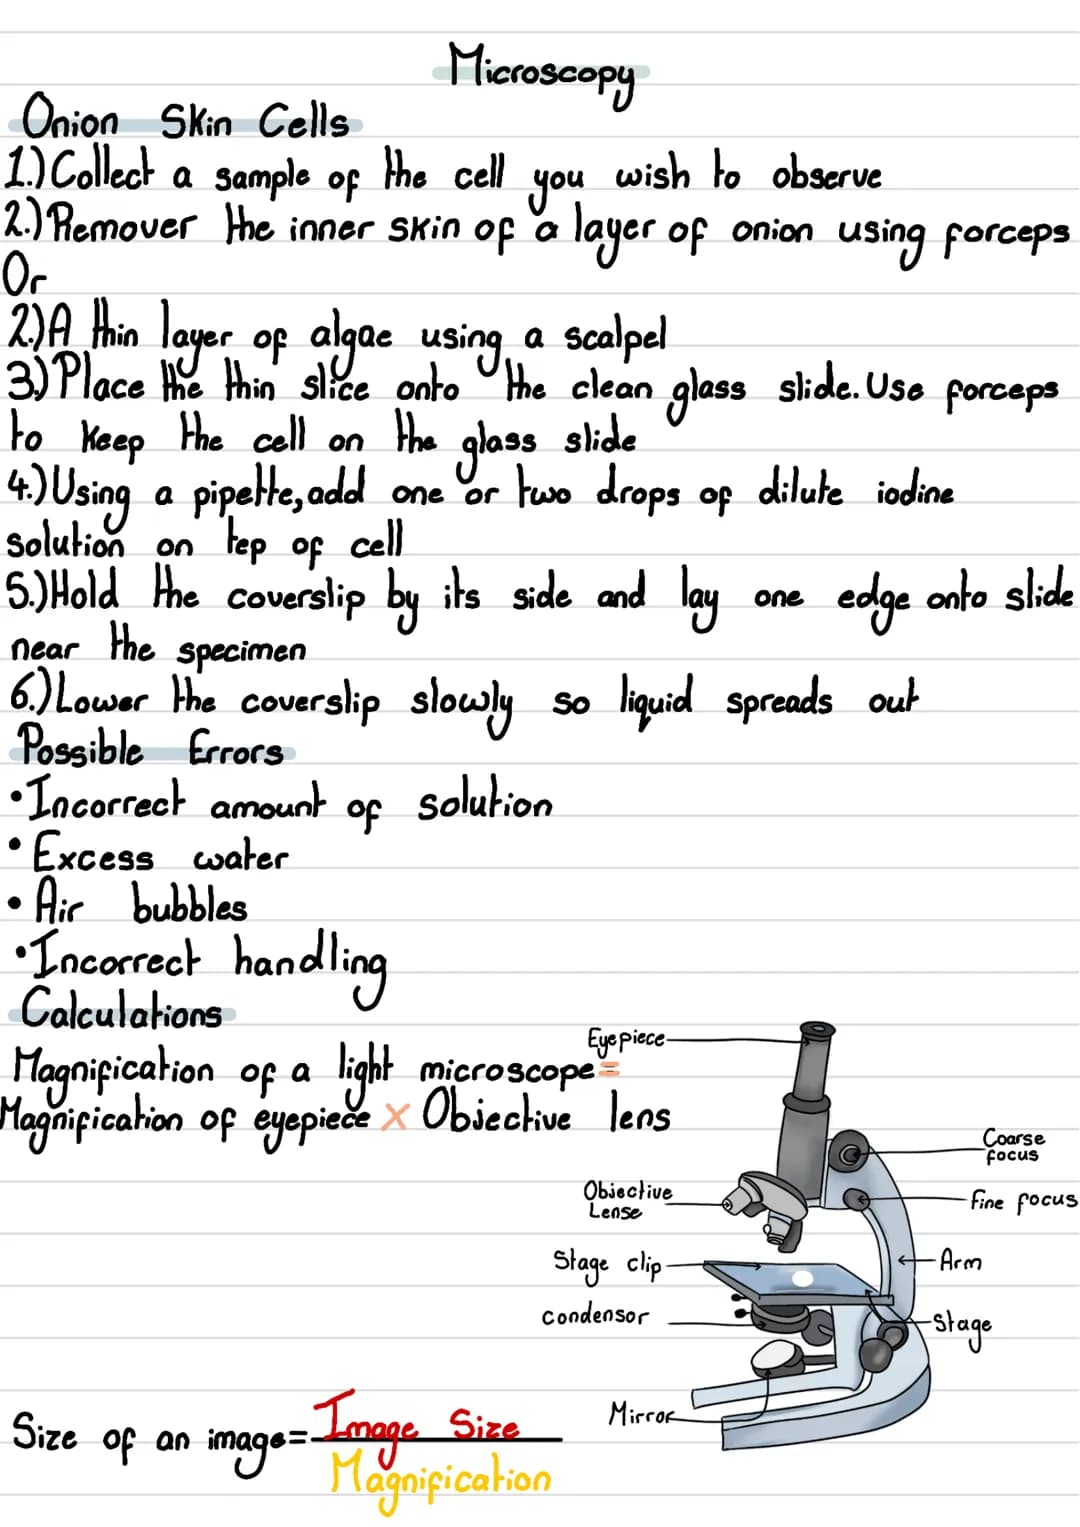 Microscopy
Onion Skin Cells
1.) Collect a sample of the cell you wish to observe
2.) Remover the inner skin of a layer of onion using forceps
Or
2.) A thin layer of algae using a scalpel
3.) Place the thin slice onto the clean glass slide. Use forceps
to keep the cell on the glass slide
4.) Using a pipette, add one or two drops of dilute iodine
solution on tep of cell
5.) Hold the coverslip by its side and lay one edge onto slide
near the specimen
6.) Lower the coverslip slowly so liquid spreads out
Possible Errors
• Incorrect amount of solution
• Excess water
• Air bubbles
• Incorrect handling
Calculations
Magnification of a light microscope =
Magnification of eyepiece × Objective lens
Eyepiece
Coarse
focus
Objective
Lense
fine focus
Stage clip
Arm
condensor
Stage
Mirror
Size of an image = Image Size
Magnification